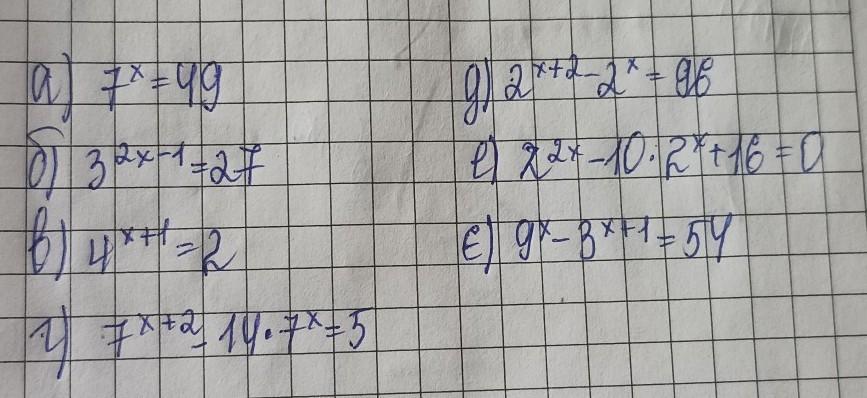 а) 7^x = 49
б) 3^{2x-1} = 27
в) 4^{x+1} = 2
г) 7^{x+2} - 14 · 7^x = 5
д) 2^{x+2} - 2^x = 96
е) 2^{2x} - 10 · 2^x + 16 = 0
є) 9^x - 3^{x+1} = 54